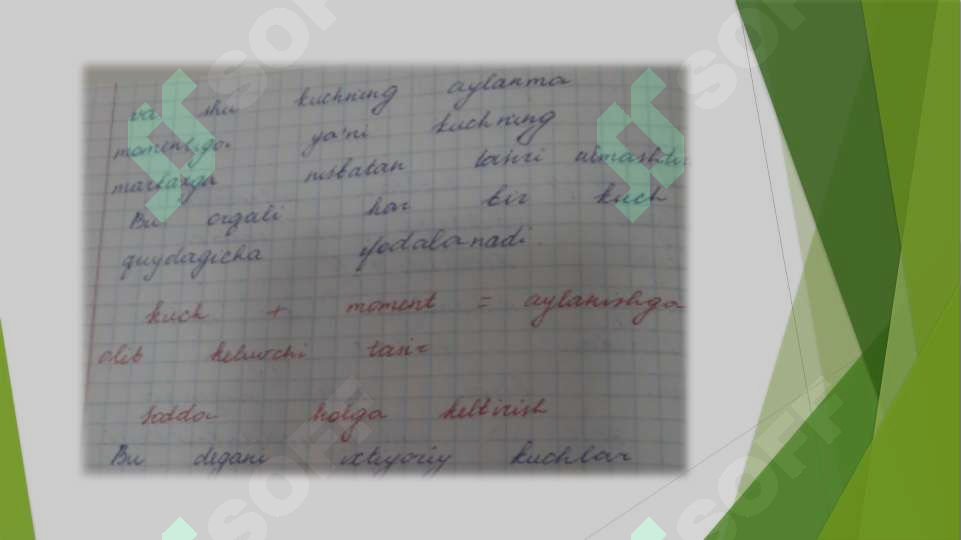 va shu kuchning aylanma
momentiga ya'ni kuchning
markazga nisbatan tasiri almashtir
Bu orqali har bir kuch
quydagicha ifodalanadi.
kuch + moment = aylanishga
olib keluvchi tasir
Sodda holga keltirish
Bu degani ixtiyoriy kuchlar
SOFF
SOFF
SOFF
SOFF